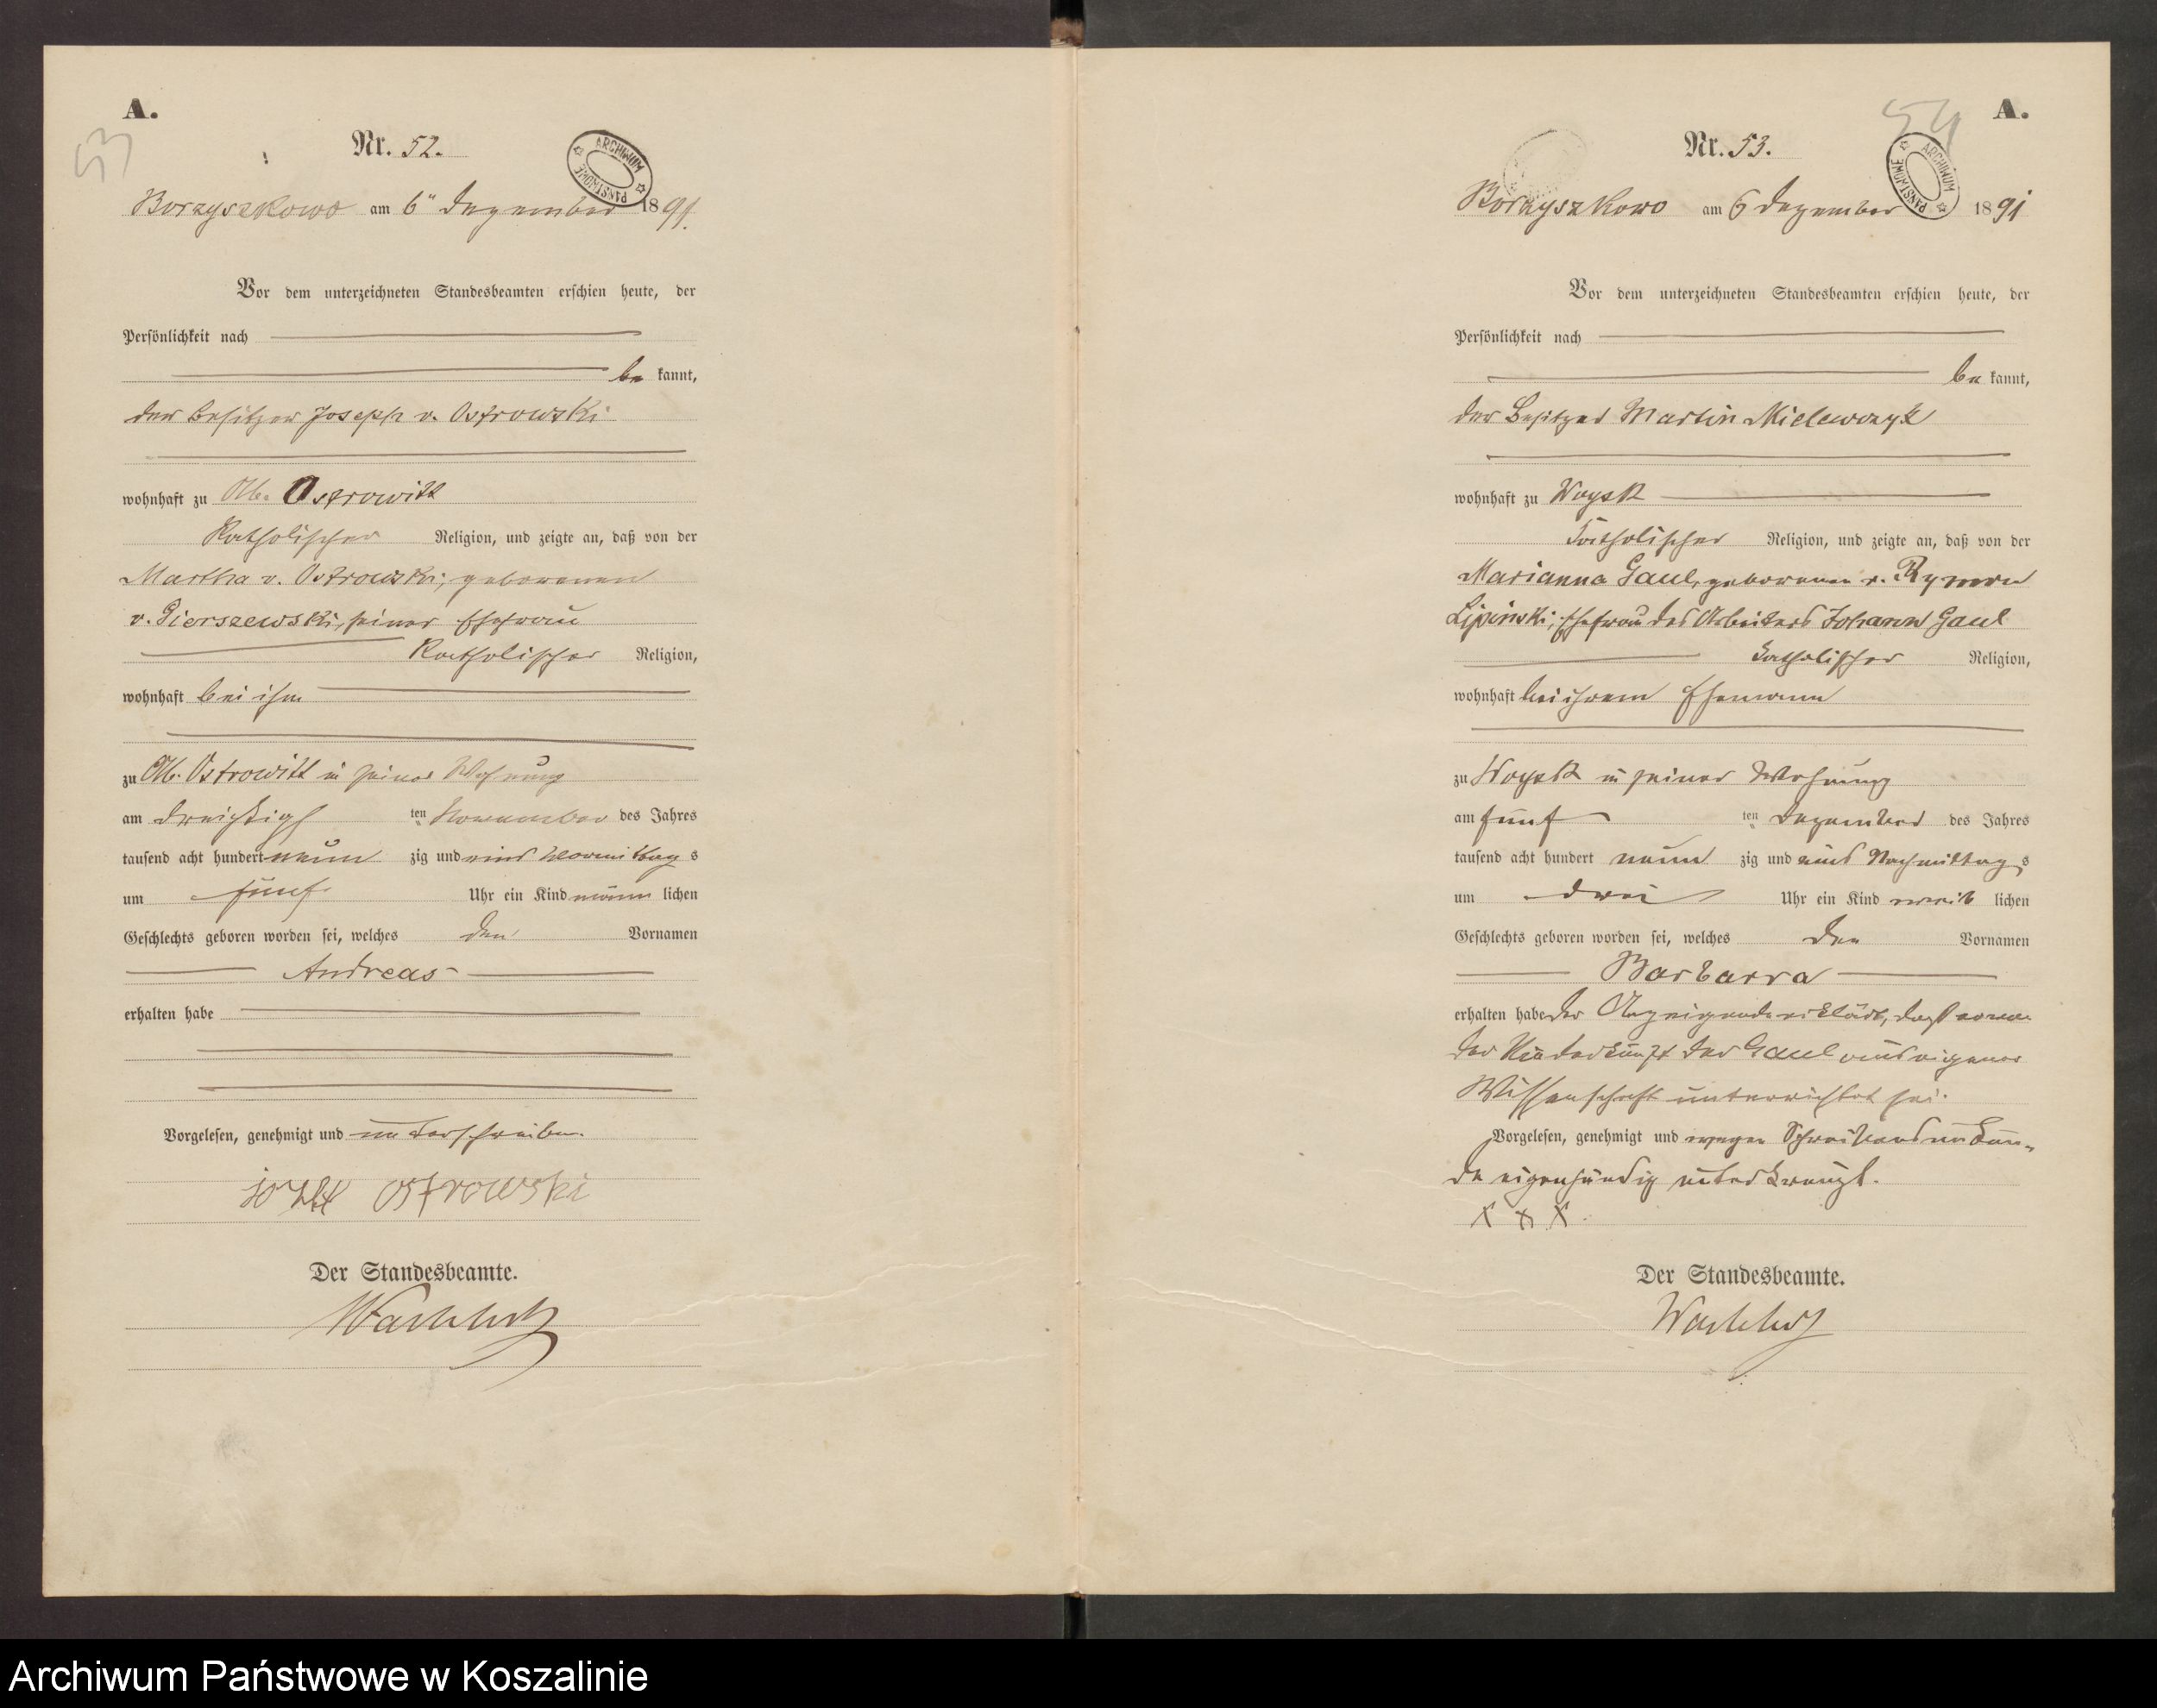 A.
53
Nr. 52.
ARCHIWUM PAŃSTWOWE
Borzyszkowo am 6" Dezember 1891.
Vor dem unterzeichneten Standesbeamten erschien heute, der
Persönlichkeit nach
be kannt,
der Besitzer Joseph v. Ostrowski
wohnhaft zu Alt. Ostrowitt
Katholischer Religion, und zeigte an, daß von der
Martha v. Ostrowski, geborenen
v. Gierszewski, seiner Ehefrau
Katholischer Religion,
wohnhaft bei ihm
zu Alt. Ostrowitt in seiner Wohnung
am dreißigs ten November des Jahres
tausend acht hundert neun zig und eins Vormittag s
um fünf Uhr ein Kind männ lichen
Geschlechts geboren worden sei, welches den Vornamen
Andreas
erhalten habe
Vorgelesen, genehmigt und unterschrieben.
Ostrowski
Der Standesbeamte.
A.
54
Nr. 53.
ARCHIWUM PAŃSTWOWE
Borzyszkowo am 6 Dezember 1891
Vor dem unterzeichneten Standesbeamten erschien heute, der
Persönlichkeit nach
be kannt,
der Besitzer Martin Mielewczyk
wohnhaft zu Woysk
katholischer Religion, und zeigte an, daß von der
Marianna Gaul, geborenen v. Rymon
Lipinski, Ehefrau des Arbeiters Johann Gaul
katholischer Religion,
wohnhaft bei ihrem Ehemann
zu Woysk in seiner Wohnung
am fünf ten Dezember des Jahres
tausend acht hundert neun zig und eins Nachmittag s
um drei Uhr ein Kind weib lichen
Geschlechts geboren worden sei, welches den Vornamen
Barbarra
erhalten habe Der Anzeigende erklärt, daß er von
der Niederkunft der Gaul aus eigener
Wissenschaft unterrichtet sei.
Vorgelesen, genehmigt und wegen Schreibensunkun-
de eigenhändig unterkreuzt.
X X X
Der Standesbeamte.
Archiwum Państwowe w Koszalinie